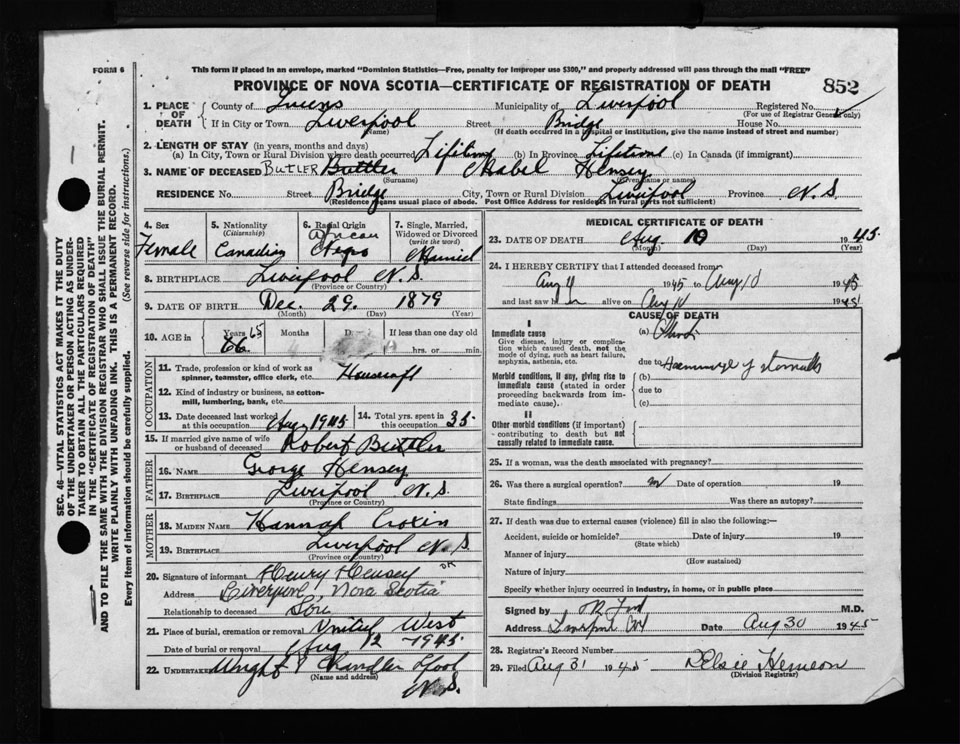 FORM 6
This form if placed in an envelope, marked "Dominion Statistics—Free, penalty for improper use $300," and properly addressed will pass through the mail "FREE"
PROVINCE OF NOVA SCOTIA—CERTIFICATE OF REGISTRATION OF DEATH 852
1. PLACE OF DEATH County of Queens Municipality of Liverpool Registered No.
(For use of Registrar General only)
If in City or Town Liverpool Street Bridge House No.
(Name) (If death occurred in a hospital or institution, give the name instead of street and number)
2. LENGTH OF STAY (in years, months and days)
(a) In City, Town or Rural Division where death occurred Lifetime (b) In Province Lifetime (c) In Canada (if immigrant)
3. NAME OF DECEASED BUTLER Buttler Mabel Hensey
(Surname) (Given name or names)
RESIDENCE No. Street Bridge City, Town or Rural Division Liverpool Province N.S.
(Residence means usual place of abode. Post Office Address for residents in rural parts not sufficient)
4. Sex Female
5. Nationality (Citizenship) Canadian
6. Racial Origin African Negro
7. Single, Married, Widowed or Divorced (write the word) Married
8. BIRTHPLACE Liverpool N.S.
(Province or Country)
9. DATE OF BIRTH Dec. 29. 1879
(Month) (Day) (Year)
10. AGE in Years 65 66 Months Days If less than one day old
hrs. or min.
OCCUPATION
11. Trade, profession or kind of work as spinner, teamster, office clerk, etc.
12. Kind of industry or business, as cotton-mill, lumbering, bank, etc.
13. Date deceased last worked at this occupation Aug 1945
14. Total yrs. spent in this occupation 35.
15. If married give name of wife or husband of deceased Robert Buttler
FATHER
16. NAME George Hensey
17. BIRTHPLACE Liverpool N.S.
(Province or Country)
MOTHER
18. MAIDEN NAME Hannah
19. BIRTHPLACE Liverpool N.S.
(Province or Country)
20. Signature of informant Henry Hensey
Address Liverpool, Nova Scotia
Relationship to deceased Son
21. Place of burial, cremation or removal West
Date of burial or removal Aug 12 - 1945.
22. UNDERTAKER Wright & Chandler Lpool
(Name and address) N.S.
MEDICAL CERTIFICATE OF DEATH
23. DATE OF DEATH Aug. 10 1945.
(Month) (Day) (Year)
24. I HEREBY CERTIFY that I attended deceased from
Aug 1945 to Aug 10 1945
and last saw h alive on Aug 10 1945
CAUSE OF DEATH
I
Immediate cause
Give disease, injury or complication which caused death, not the mode of dying, such as heart failure, asphyxia, asthenia, etc.
(a)
due to
Morbid conditions, if any, giving rise to immediate cause (stated in order proceeding backwards from immediate cause).
(b)
due to
(c)
II
Other morbid conditions (if important) contributing to death but not causally related to immediate cause.
25. If a woman, was the death associated with pregnancy?
26. Was there a surgical operation? Date of operation 19
State findings Was there an autopsy?
27. If death was due to external causes (violence) fill in also the following:—
Accident, suicide or homicide? Date of injury 19
(State which)
Manner of injury
(How sustained)
Nature of injury
Specify whether injury occurred in industry, in home, or in public place
Signed by M.D.
Address Date Aug 30 1945
28. Registrar's Record Number
29. Filed Aug 31 1945
(Division Registrar)
SEC. 46—VITAL STATISTICS ACT MAKES IT THE DUTY
OF THE UNDERTAKER OR PERSON ACTING AS UNDER-
TAKER TO OBTAIN ALL THE PARTICULARS REQUIRED
IN THE "CERTIFICATE OF REGISTRATION OF DEATH"
AND TO FILE THE SAME WITH THE DIVISION REGISTRAR WHO SHALL ISSUE THE BURIAL PERMIT.
WRITE PLAINLY WITH UNFADING INK. THIS IS A PERMANENT RECORD.
Every item of information should be carefully supplied. (See reverse side for instructions.)